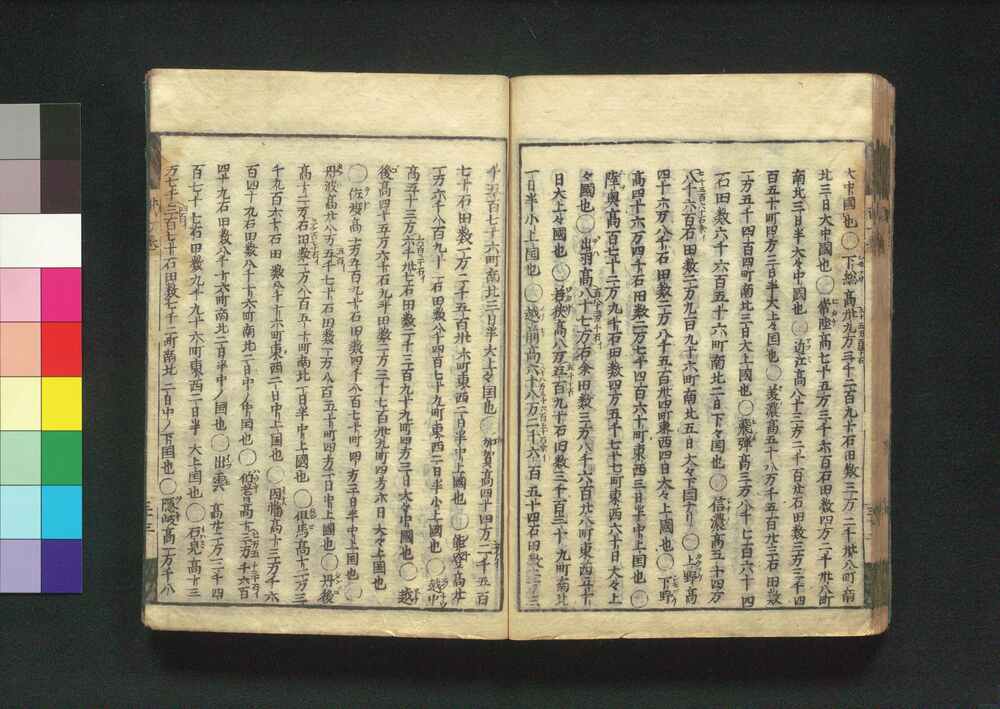 大中國也〇下総高卅九万三千二百九十石田数三万二千卅八町南
北三日大中國也〇常陸高七十五万三千六百石田数四万二千卅八町
南北三日半大々中國也〇近江高八十三万二千百廿石田数三万三千四
百五十町四方三日半大上々國也〇美濃高五十八万千五百廿三石田数
一万五千四百四町南北三日大上國也〇飛弾高三万八千七百六十四
石田数六千六百五十六町南北二日下々国也〇信濃高五十四万
八千六百石田数二万九百九十六町南北五日大々下国也〇上野高
四十六万八千石田数二万八千五百卅四町東西四日大々上國也〇下野
高四十六万四千石田数二万七千四百六十町東西三日半中上国也〇
陸奥高百七十二万九千石田数四万五千七十七町東西六十日大々上
々國也〇出羽高八十七万石余田数三万八千六百廿八町東西四十
日大上々國也〇若狭高八万五百九十石田数三千百三十九町南北
一日半小上国也〇越前高六十八万二千六百五十四石田数二万三
千五百七十六町南北三日半大上々国也〇加賀高四十四万二千五百
七十石田数一万二千五百卅六町東西二日半中上國也〇能登高廿
一万六千八百九十一石田数八千四百七十九町東西二日半小上國也〇越中
高五十三万六千卅七石田数二千三百九十九町四方三日大々中國也〇越
後高四十五万六十石九斗田数二万三千七百卅九町四方六日大々上国也
〇佐渡高一万五百九十石田数四千八百七十町四方三日半中上国也〇
丹波高廿八万五千七十石田数一万八百五十町四方二日中上國也〇丹後
高十二万石田数一万八百五十町南北一日半中上國也〇但馬高十二万三
千九百六十石田数八千十六町東西二日中上国也〇因幡高十三万千六
百四十九石田数八千十六町南北二日中ノ中国也〇伯耆高十三万千六百
四十九石田数八千十六町南北二日半中ノ国也〇出雲高廿二万三千四
百七十七石田数九千九十六町東西二日半大上国也〇石見高十三
万七千三百七十石田数七千二町南北二日中ノ下国也〇隠岐高一万千八